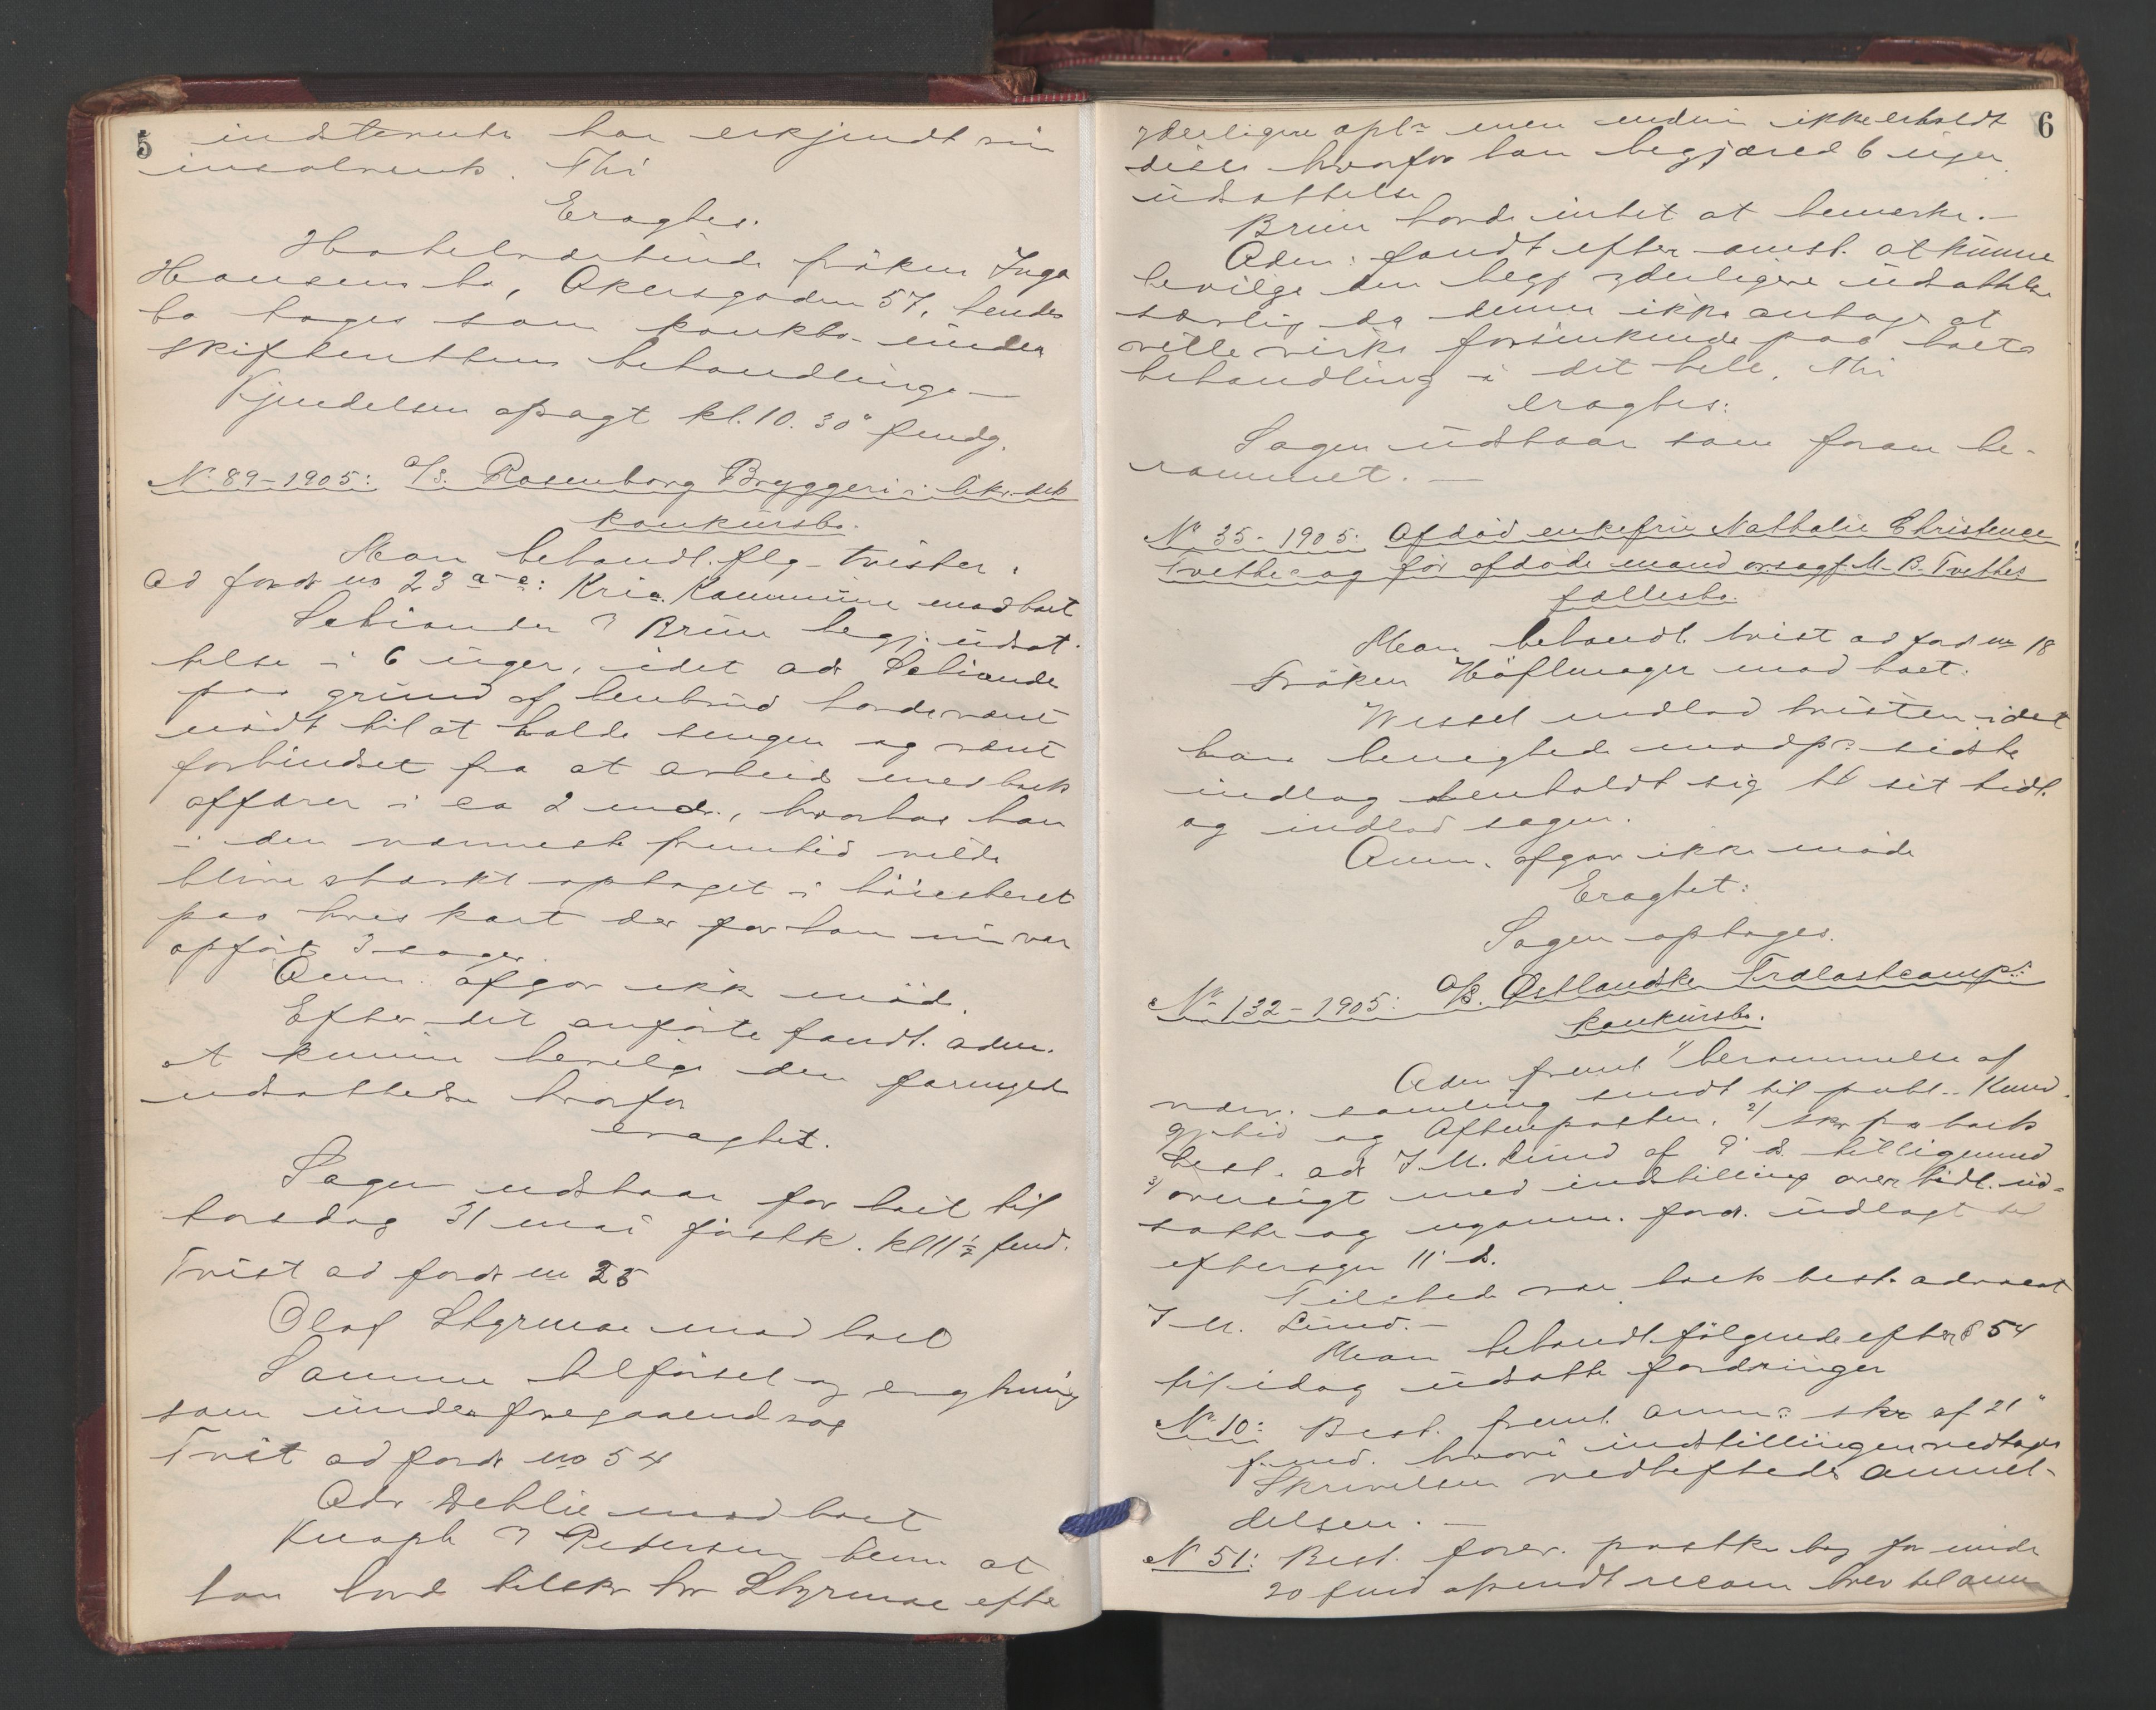 5
indstevnte har erkjendt sin
insolvents. Thi
Eragtes:
Hotelværtinde frøken Inga
Hansens bo, Akersgaden 57, hendes
bo tages som konkbo under
skifterettens behandling.—
Kjendelsen opsagt kl. 10.30" fmdg.
No 89-1905: A/S. Rosenborg Bryggeri i likv. dets
konkursbo.
Man behandl. flg. tvister.
Ad fordr no 23 a-c: Kria. Kommune mod boet
Schiander v Brun begj. udsæt-
telse i 6 uger, idet adv Schiander
paa grund af benbrud havde været
nødt til at holde sengen og været
forhindret fra at arbeide med boets
affærer i ca 2 mdr., hvorhos han
i den nærmeste fremtid vilde
blive stærkt optaget i høiesteret
paa hvis kart der for ham nu var
opført 3 sager.
Anm. afgav ikke møde.
Efter det anførte fandt adm.
at kunne bevilge den forlangte
udsættelse hvorfor
eragtet.
Sagen udstaar for boet til
torsdag 31 mai førstk. kl 11½ fmd.
Tvist ad fordr no 25
Olaf Styrmoe mod boet
Samme tilførsel og eragtning
som under foregaaende sag
Tvist ad fordr no 54
Adv Dehlie mod boet
Knoph v Pedersen bem at
han havde tilskr hr Styrmoe efter
6
yderligere opl. men endnu ikke erholdt
disse hvorfor han begjæred 6 uger
udsættelse
Brun havde intet at bemerke.—
Adm: fandt efter omst. at kunne
bevilge den begj yderligere udsættelse
særlig da denne ikke antages at
ville virke forsinkende paa boets
behandling i det hele. Thi
eragtes:
Sagen udstaar som foran be-
rammet.—
No 35-1905: Afdød enkefru Nathalie Christence
Tvethes og før afdøde mand orsagf. M. B. Tvethes
fællesbo.
Man behandl. tvist ad ford no 18
Frøken Høflmayer mod boet.
Wessel indlod tvisten idet
han benegtede modp.s sidste
indlæg henholdt sig til sit tidl.
og indlod sagen.
Anm. afgav ikke møde
Eragtet:
Sagen optages.
No 132-1905: A/S. Østlandske Trælastcomp.s
konkursbo.
Adm freml. 1/ berammelse af
nærv. samling sendt til publ. Kund-
gjtid og Aftenposten. 2/ skr fra boets
best. adv J. M. Lund af 9' ds. tilligemed
3/ oversigt med indstilling over tidl. ud-
satte og nyanm. ford. udlagt til
eftersyn 11' ds.
Tilstede var boets best. advocat
J. M. Lund.—
Man behandl. følgende efter § 54
til idag udsatte fordringer
No 10: Best. freml. anm.s skr af 21"
f.md. hvori indstillingen vedtages
Skrivelsen vedheftedes anmel-
delsen.—
No 51: Best. forev. postkv bog for
20 fmd afsendt recom brev til anm